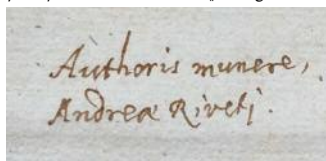 Authoris munere,
Andreæ Riveti.